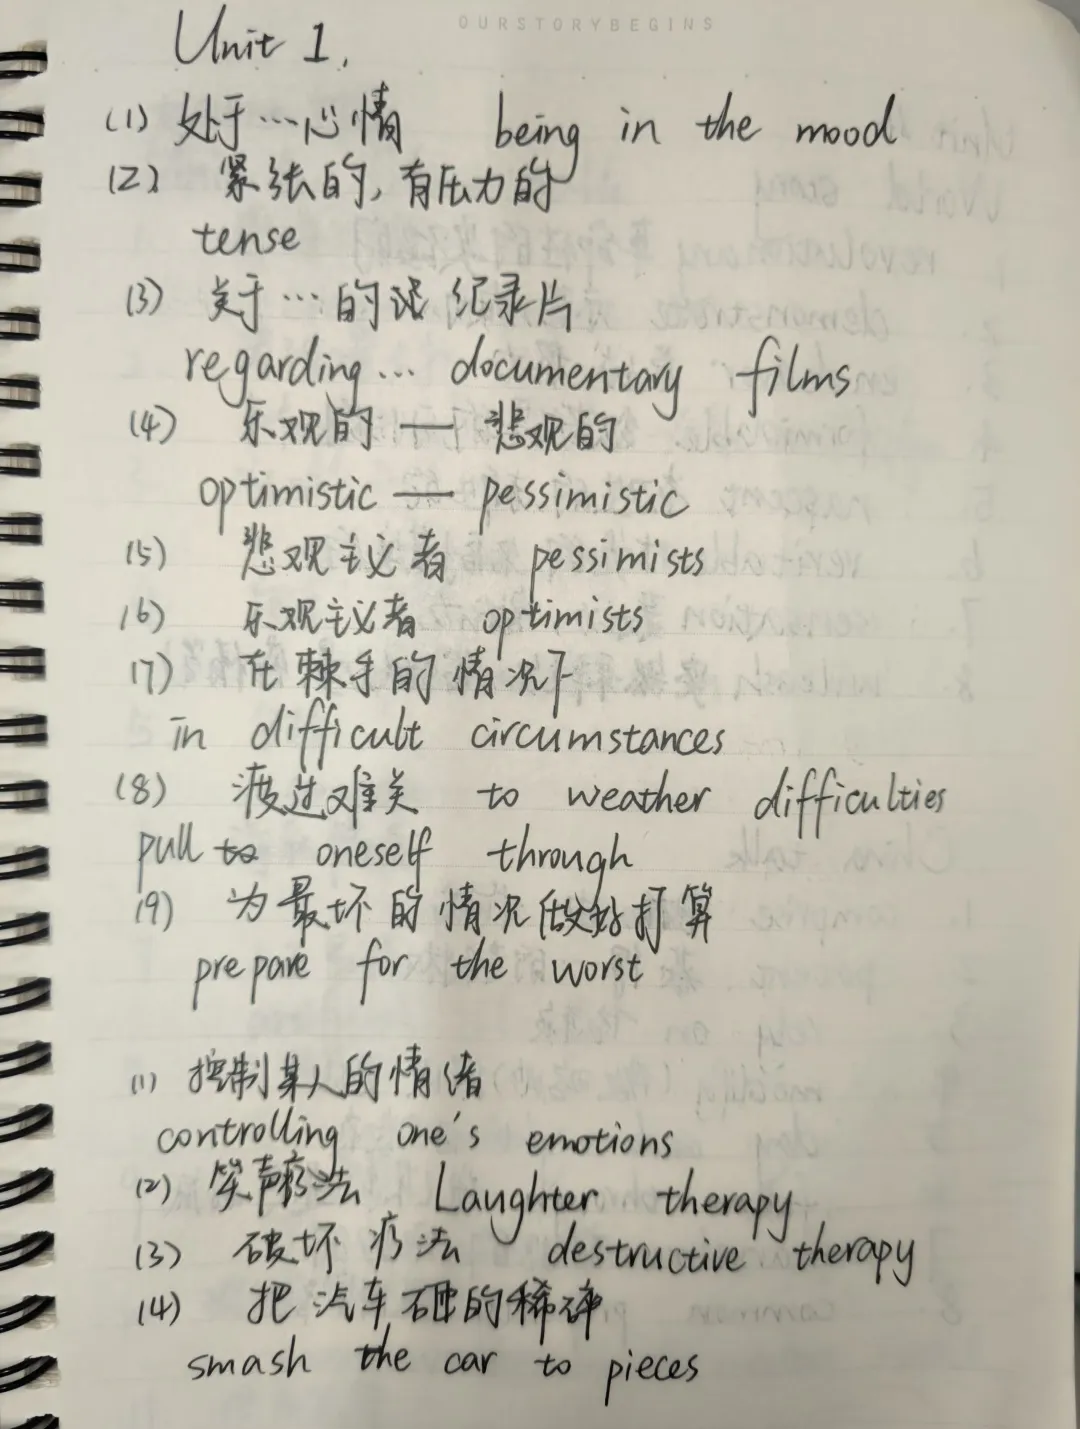 OURSTORYBEGINS
Unit 1.
(1) 处于…心情 being in the mood
(2) 紧张的,有压力的
tense
(3) 关于…的 纪录片
regarding… documentary films
(4) 乐观的 — 悲观的
optimistic — pessimistic
(5) 悲观主义者 pessimists
(6) 乐观主义者 optimists
(7) 在棘手的情况下
in difficult circumstances
(8) 渡过难关 to weather difficulties
pull oneself through
(9) 为最坏的情况做好打算
prepare for the worst
(1) 控制某人的情绪
controlling one's emotions
(2) 笑声疗法 Laughter therapy
(3) 破坏疗法 destructive therapy
(4) 把汽车砸的稀碎
smash the car to pieces